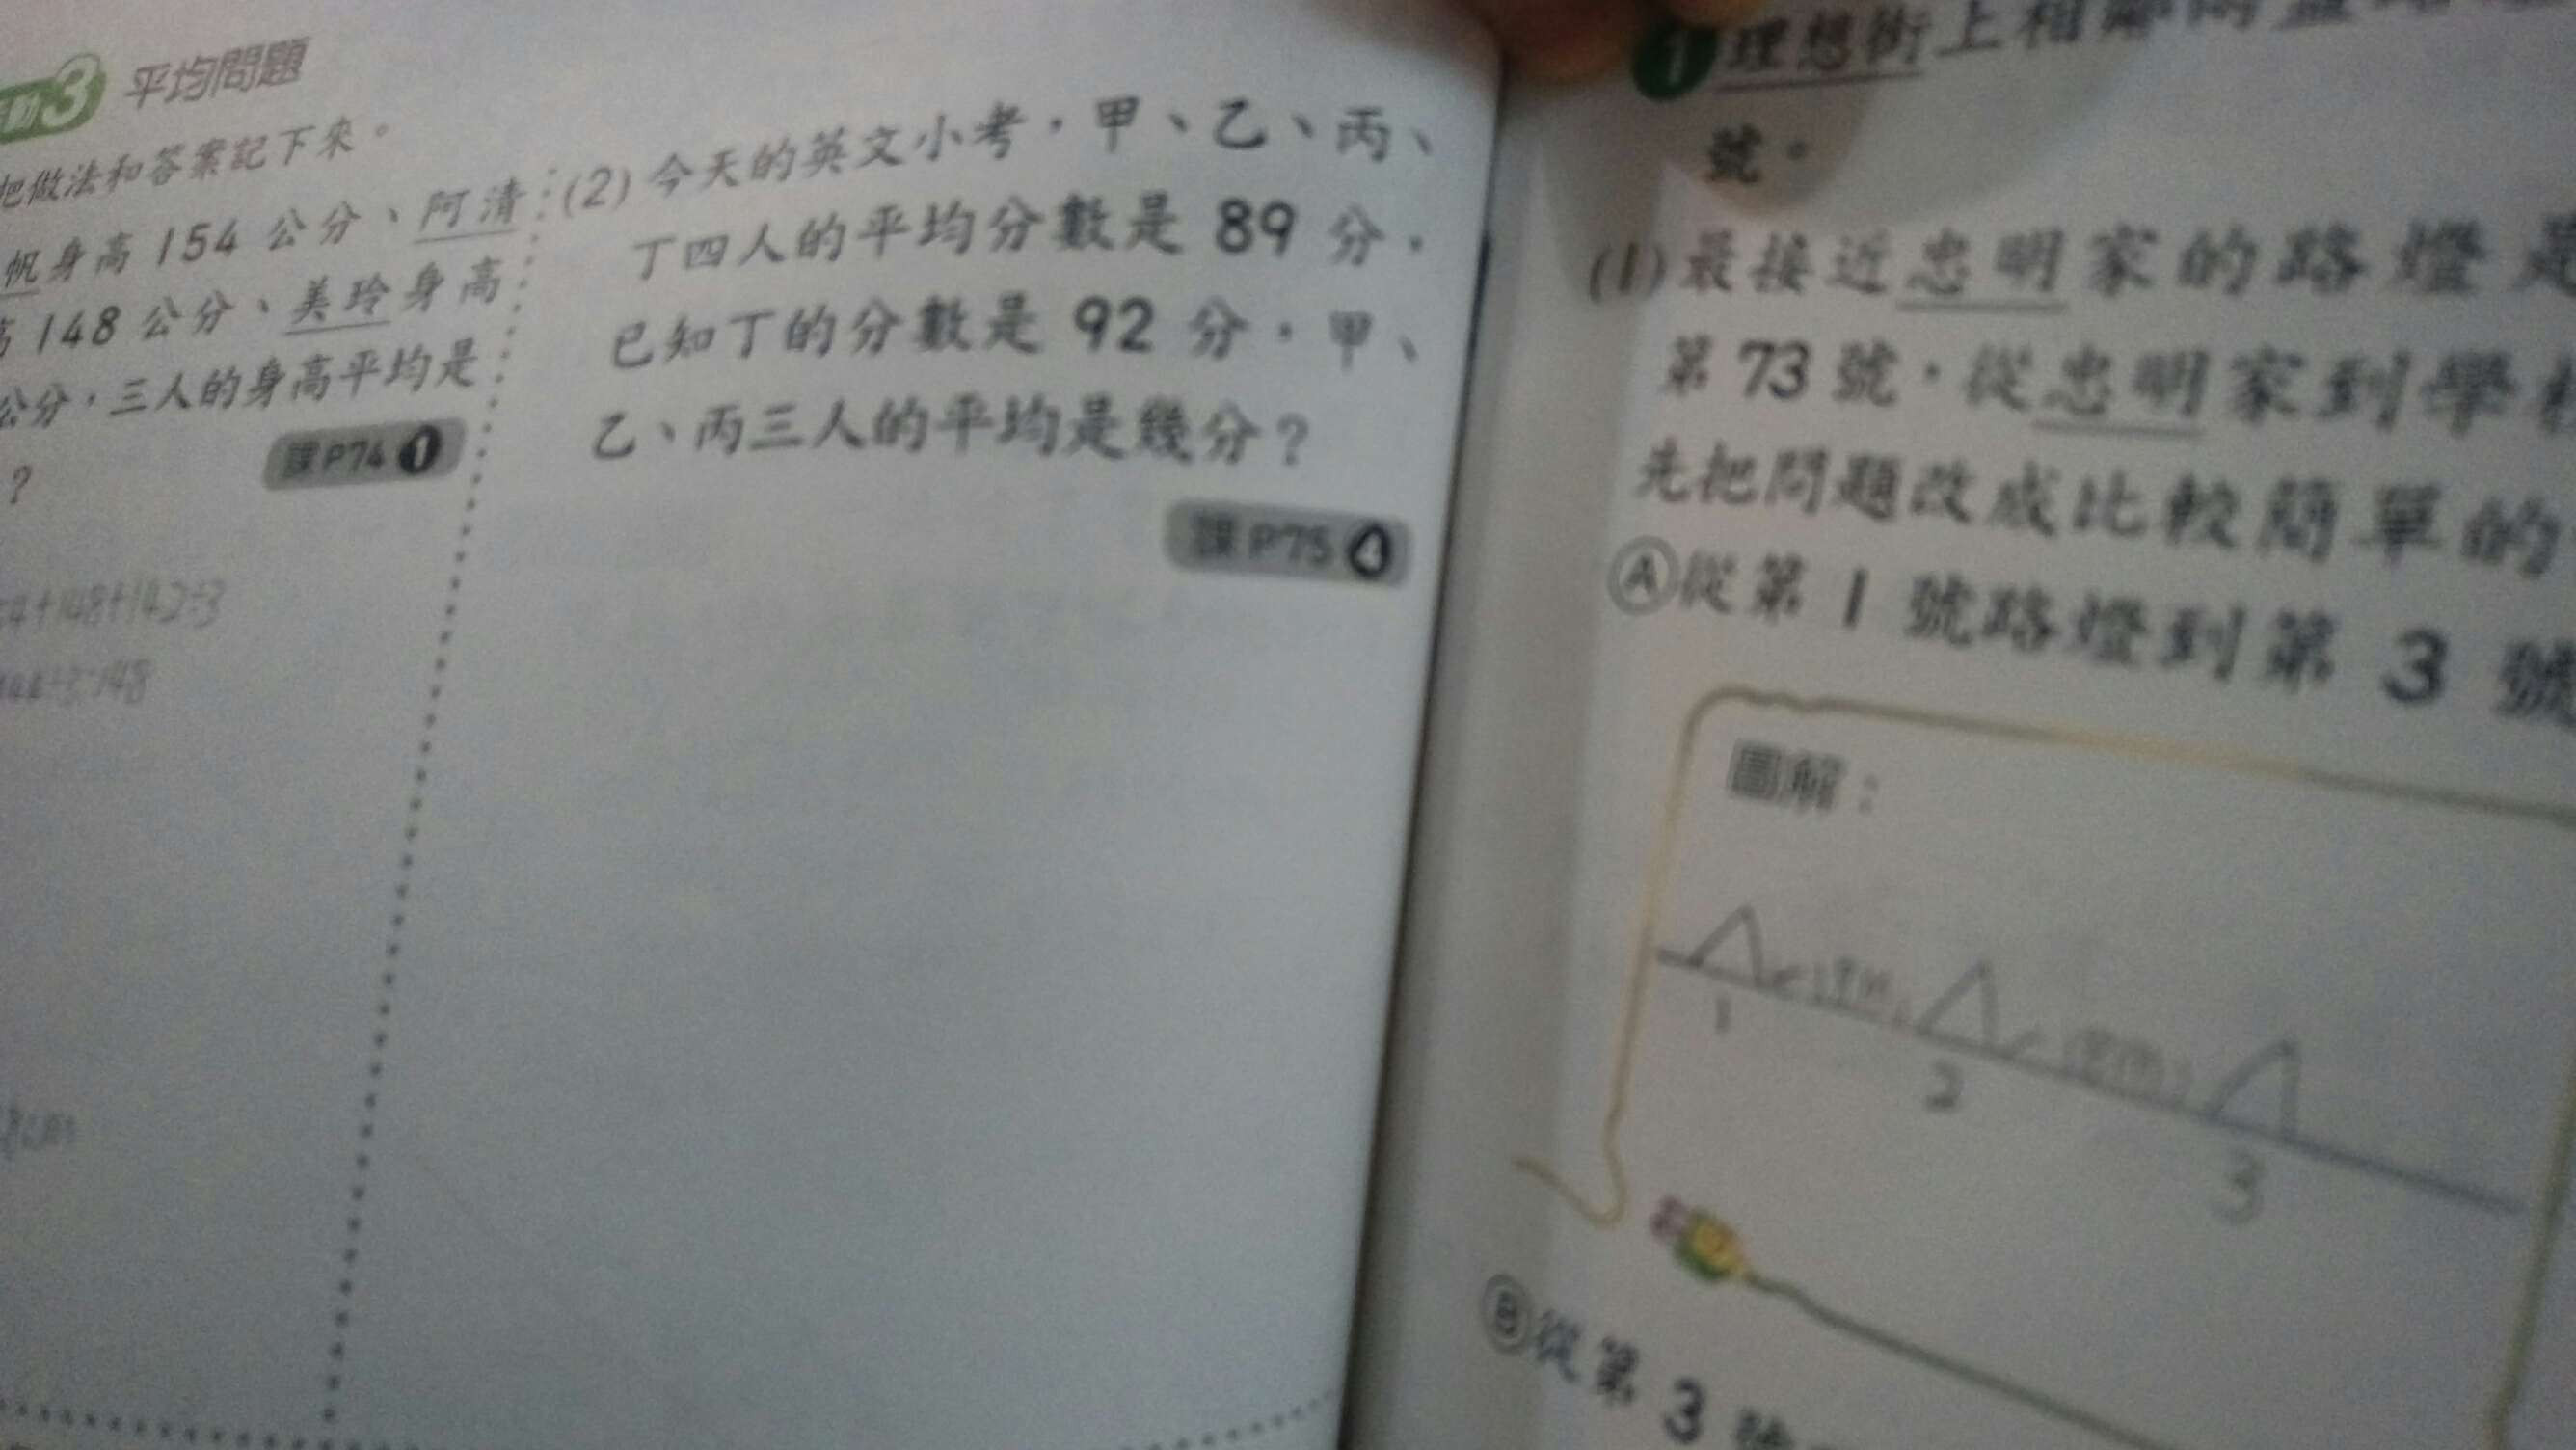 3 平均問題
把做法和答案記下來。
帆身高154公分、阿清
148公分、美玲身高
公分，三人的身高平均是
?
課P74 1
4+148+142÷3
148
cm
(2) 今天的英文小考，甲、乙、丙、
丁四人的平均分數是 89 分，
已知丁的分數是 92 分，甲、
乙、丙三人的平均是幾分？
課P75 4
1 理想街上相鄰
號。
(1) 最接近忠明家的路燈是
第 73 號，從忠明家到學
先把問題改成比較簡單的
Ⓐ從第 1 號路燈到第 3 號
圖解：
1
2
3
Ⓑ從第 3 號